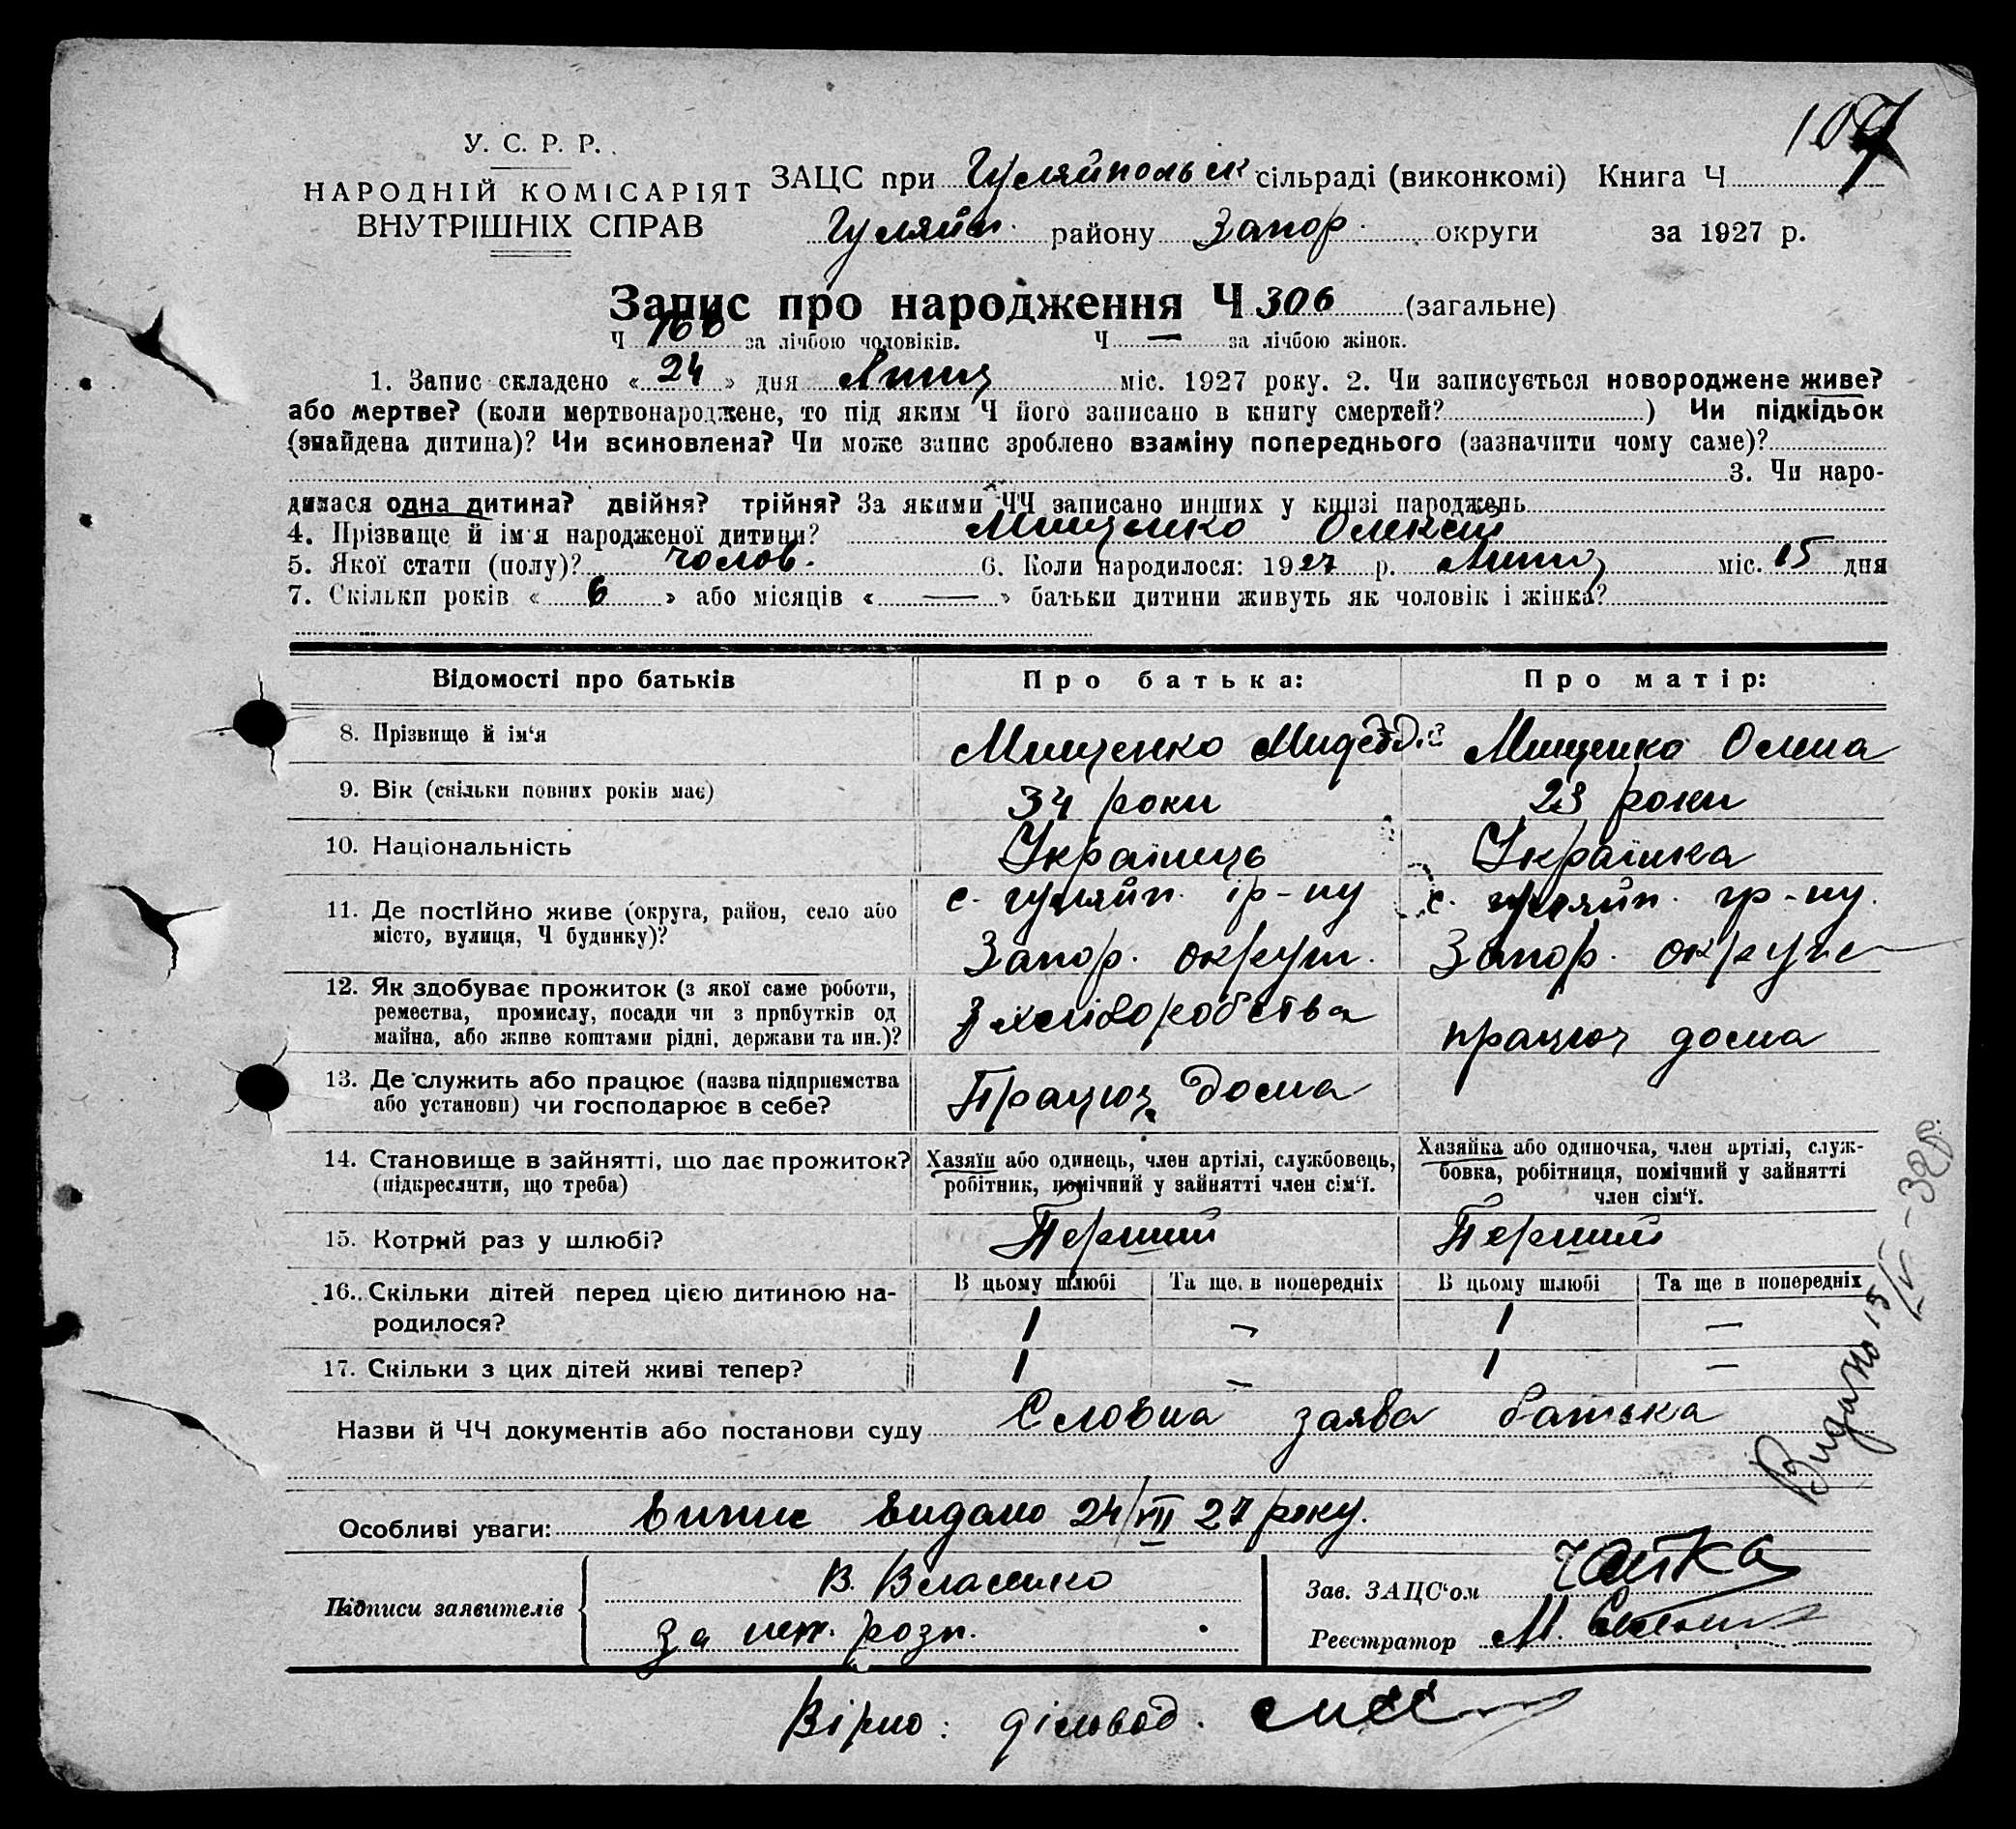 107
У. С. Р. Р.
НАРОДНІЙ КОМІСАРІЯТ
ВНУТРІШНІХ СПРАВ
ЗАЦС при Гуляйпольск сільраді (виконкомі) Книга Ч
Гуляйп. району Запор. округи за 1927 р.
Запис про народження Ч 306 (загальне)
Ч 166 за лічбою чоловіків. Ч — за лічбою жінок.
1. Запис складено « 24 » дня Липня міс. 1927 року. 2. Чи записується новороджене живе?
або мертве? (коли мертвонароджене, то під яким Ч його записано в книгу смертей? ) Чи підкідьок
(знайдена дитина)? Чи всиновлена? Чи може запис зроблено взаміну попереднього (зазначити чому саме)?
3. Чи наро-
дилася одна дитина? двійня? трійня? За якими ЧЧ записано инших у книзі народжень
4. Прізвище й ім'я народженої дитини? Мищенко Олексій
5. Якої стати (полу)? чолов. 6. Коли народилося: 1927 р. Липня міс. 15 дня
7. Скільки років « 6 » або місяців « — » батьки дитини живуть як чоловік і жінка?
Відомості про батьків Про батька: Про матір:
8. Прізвище й ім'я Мищенко Мищенко
9. Вік (скільки повних років має) 34 роки 23 роки
10. Національність Українець Українка
11. Де постійно живе (округа, район, село або
місто, вулиця, Ч будинку)?
с. гуляйп. р-ну с. гуляйп. р-ну.
Запор. округи. Запор. округи
12. Як здобуває прожиток (з якої саме роботи,
ремества, промислу, посади чи з прибутків од
майна, або живе коштами рідні, держави та ин.)?
З хліборобства працює дома
13. Де служить або працює (назва підприємства
або установи) чи господарює в себе?
Працює дома
14. Становище в зайнятті, що дає прожиток?
(підкреслити, що треба)
Хазяїн або одинець, член артілі, службовець,
робітник, помічний у зайнятті член сім'ї.
Хазяйка або одиночка, член артілі, служ-
бовка, робітниця, помічний у зайнятті
член сім'ї.
15. Котрий раз у шлюбі? Перший Перший
16. Скільки дітей перед цією дитиною на-
родилося?
В цьому шлюбі Та ще в попередніх В цьому шлюбі Та ще в попередніх
1 — 1 —
17. Скільки з цих дітей живі тепер? 1 — 1 —
Назви й ЧЧ документів або постанови суду Словна заява батька
Особливі уваги: випис видано 24/VII 27 року.
Підписи заявителів В. Власенко
за неп. розп.
Зав. ЗАЦС'ом Чайка
Реєстратор М.
Вірно: діловод.
Видано 15/V-